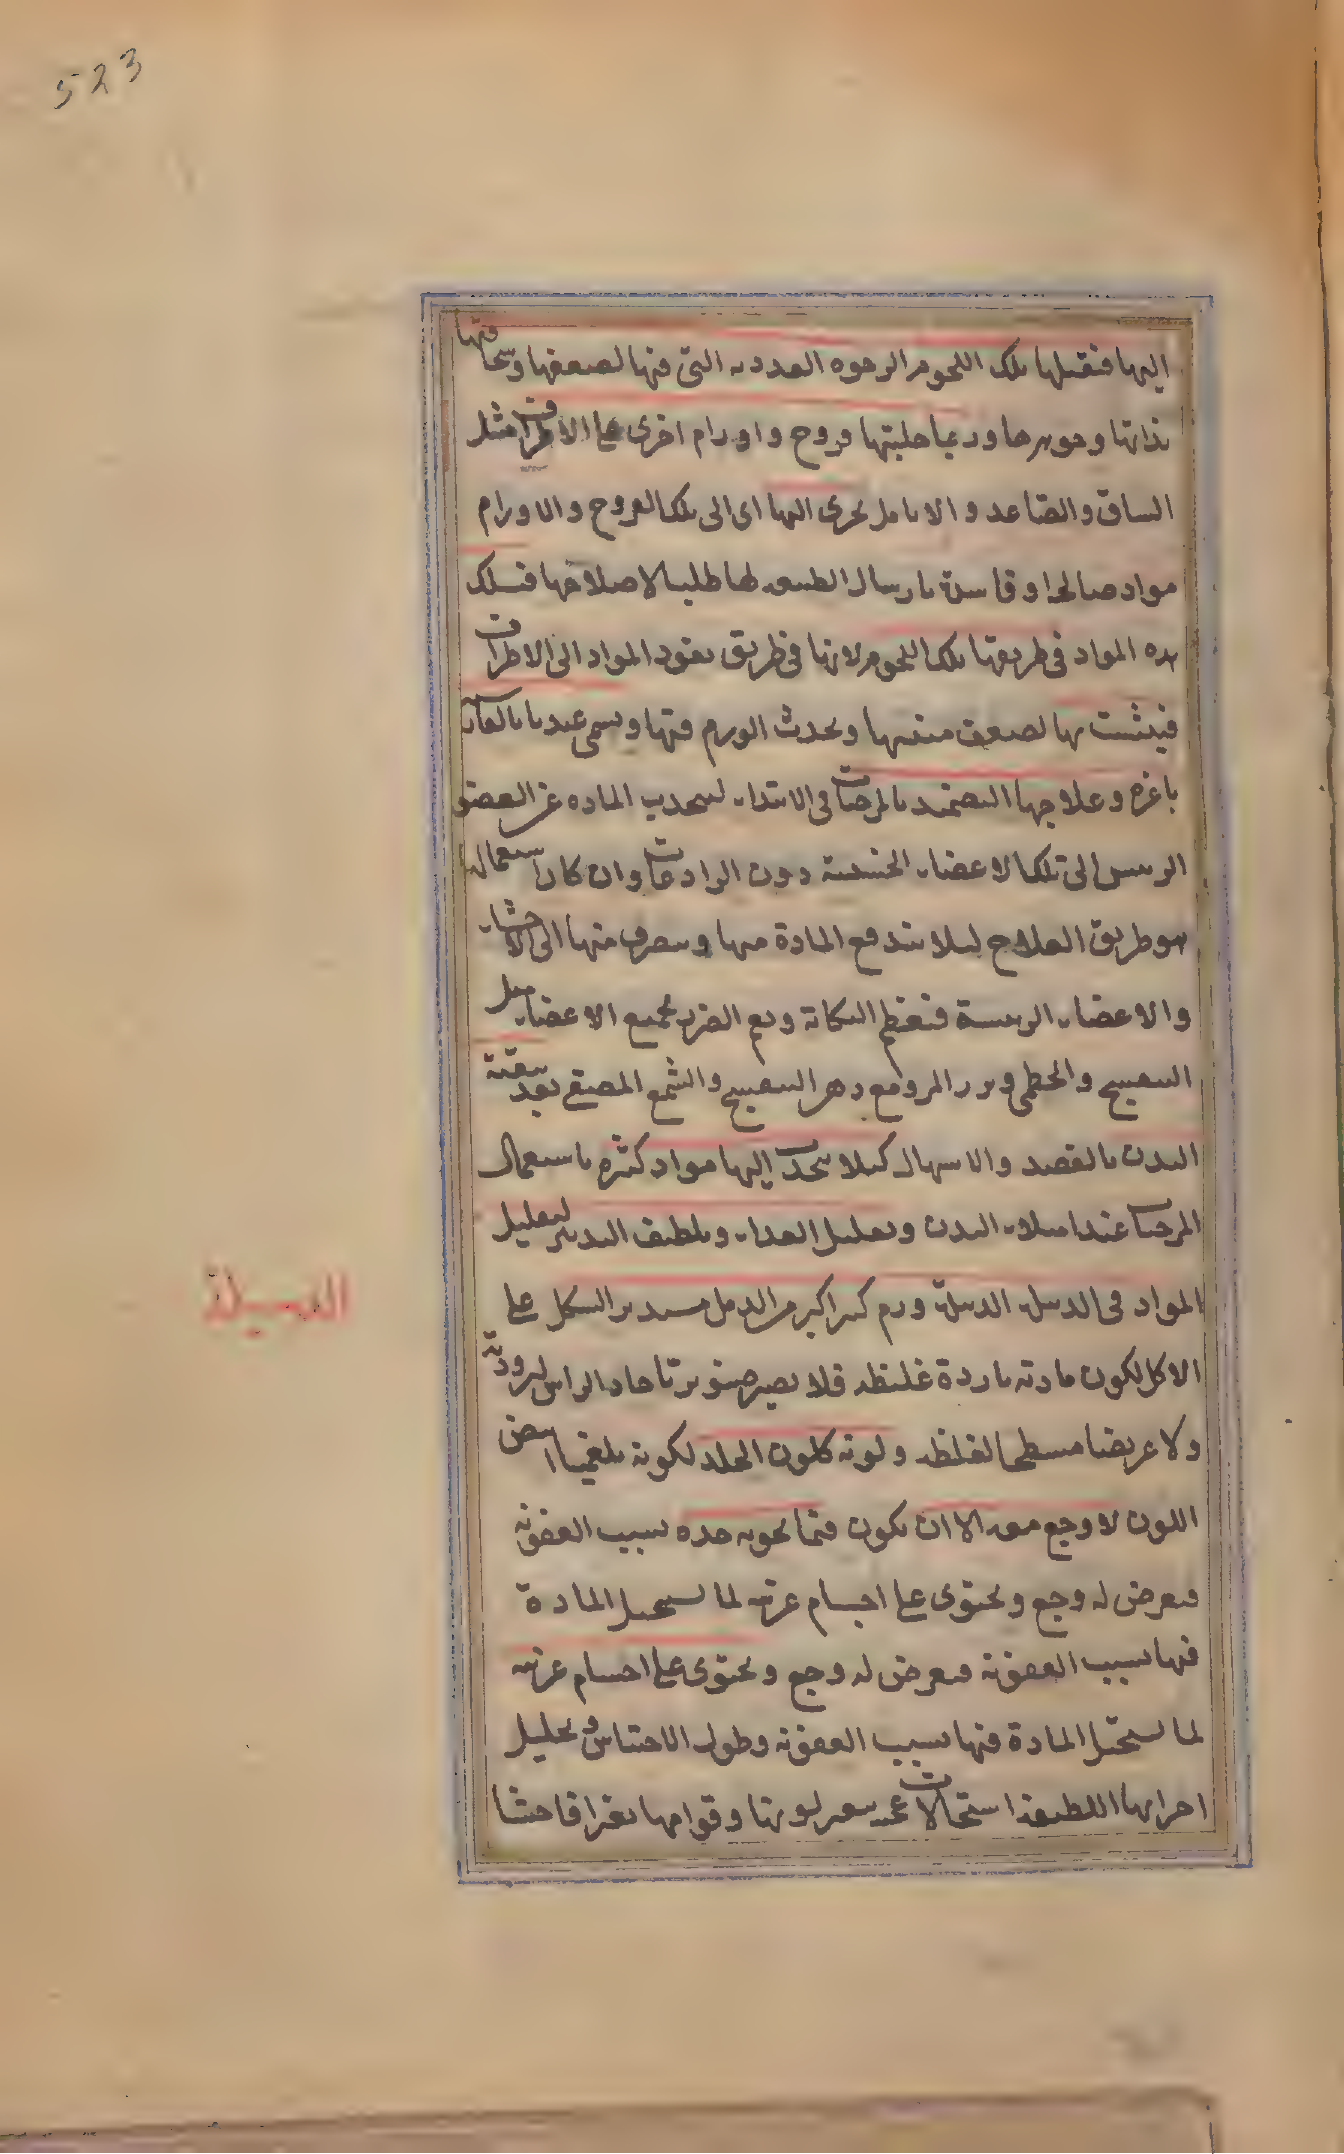 523
اليها فتقبلها تلك اللحوم الرخوة الغددية التى فيها لضعفها وسخافتها
بذاتها وجوهرها وربما جلبتها قروح واورام اخرى على الاطراف مثل
الساق والصاعد والانامل يجرى اليها اى الى تلك القروح والاورام
مواد صالحة او فاسدة بارسال الطبيعة لها طلبا لاصلاحها فتسلك
هذه المواد فى طريقها تلك اللحوم لانها فى طريق نفوذ المواد الى الاطراف
فيتشبث بها لضعف منتنها ويحدث الورم فيها ويسمى عندنا بالفارسية
باغره وعلاجها التضميد بالمرخيات فى الابتداء لينجذب المادة عن العضو
الرئيس الى تلك الاعضاء الخسيسة دون الرادعات وان كان استعمالها
هو طريق العلاج ليلا تندفع المادة منها وينصرف منها الى الاحشاء
والاعضاء الرئيسة فتعظم النكاية ويعم الضرر بجميع الاعضاء مثل
البنفسج والخطمى وبزر المرو مع دهن البنفسج والشمع المصفى بعد تنقية
البدن بالفصد والاسهال كيلا ينجذب اليها مواد كثيرة باستعمال
المرخيات عند امتلاء البدن وتقليل الغذاء وتلطيف التدبير لتقليل
المواد فى الدبيلة الدبيلة ورم كبير اكبر من الدمل مستدير الشكل على
الاكثر لكون مادته باردة غليظة فلا يصير صنوبريا حاد الراس لبرودته
ولا عريضا مسطحا لغلظه ولونه كلون الجلد لكونه بلغميا ابيض
اللون لا وجع معه الا ان يكون فيما يحويه حدة بسبب العفونة
فيعرض له وجع ويحتوى على اجسام غريبة لما يستحيل المادة
فيها بسبب العفونة فيعرض له وجع ويحتوى على اجسام غريبة
لما يستحيل المادة فيها بسبب العفونة وطول الاحتباس وتحليل
اجزائها اللطيفة استحالات عجيبة يتغير لونها وقوامها تغيرا فاحشا
الدبيلة